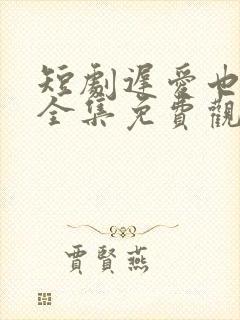 短劇遲愛也
全集免費觀
賈賢燕